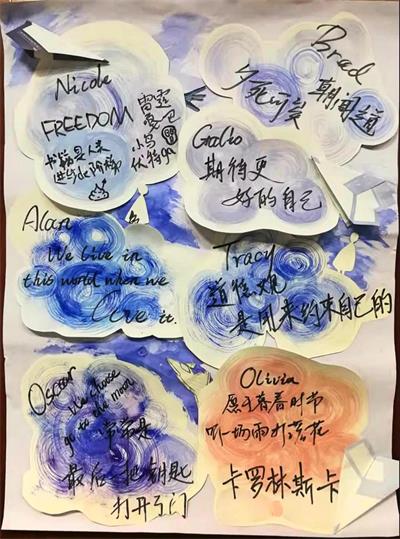 Nicole
FREEDOM
书籍是人类
进步de阶梯
雷霆
小鸟
伏特加
Brad
朝闻道
夕死可矣
Gallo
期待更
好的自己
Alan
We live in
this world when we
love it.
Tracy
道德观
是用来约束自己的
Oscar
We choose
go to the moon
常常是
最后一把钥匙
打开了门
Olivia
愿于暮春时节
听一场雨打落花
卡罗林斯卡